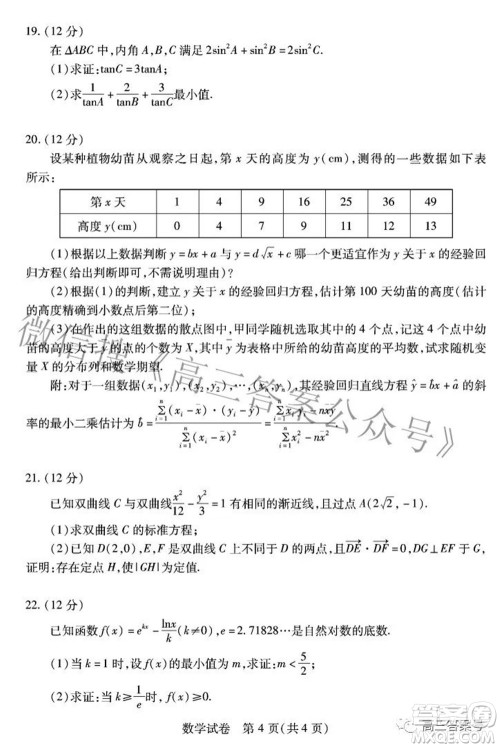 19. (12 分)
在 △ABC 中,内角 A,B,C 满足 2sin²A+sin²B=2sin²C.
(1)求证:tanC=3tanA;
(2)求 1/tanA + 2/tanB + 3/tanC 最小值.
20. (12 分)
设某种植物幼苗从观察之日起,第 x 天的高度为 y(cm),测得的一些数据如下表
所示:
第 x 天 1 4 9 16 25 36 49
高度 y(cm) 0 4 7 9 11 12 13
(1)根据以上数据判断 y=bx+a 与 y=d√x+c 哪一个更适宜作为 y 关于 x 的经验回
归方程(给出判断即可,不需说明理由)?
(2)根据(1)的判断,建立 y 关于 x 的经验回归方程,估计第 100 天幼苗的高度(估计
的高度精确到小数点后第二位);
(3)在作出的这组数据的散点图中,甲同学随机选取其中的 4 个点,记这 4 个点中幼
苗的高度大于 ȳ 的点的个数为 X,其中 ȳ 为表格中所给的幼苗高度的平均数,试求随机变
量 X 的分布列和数学期望.
附:对于一组数据(x₁,y₁),(x₂,y₂),…,(xₙ,yₙ),其经验回归直线方程 ŷ=b̂x+â 的斜
率的最小二乘估计为 b̂ = Σᵢ₌₁ⁿ(xᵢ-x̄)(yᵢ-ȳ) / Σᵢ₌₁ⁿ(xᵢ-x̄)² = (Σᵢ₌₁ⁿxᵢyᵢ-nx̄ȳ) / (Σᵢ₌₁ⁿxᵢ²-nx̄²)
21. (12 分)
已知双曲线 C 与双曲线 x²/12 - y²/3 = 1 有相同的渐近线,且过点 A(2√2,-1).
(1)求双曲线 C 的标准方程;
(2)已知 D(2,0),E,F 是双曲线 C 上不同于 D 的两点,且 DE·DF=0,DG⊥EF 于 G,
证明:存在定点 H,使|GH|为定值.
22. (12 分)
已知函数 f(x)=e^(kx) - lnx/k (k≠0),e=2.71828…是自然对数的底数.
(1)当 k=1 时,设 f(x)的最小值为 m,求证:m<5/2;
(2)求证:当 k≥1/e 时,f(x)≥2.
数学试卷 第 4 页(共 4 页)
微信搜《高三答案公众号》
高三答案号